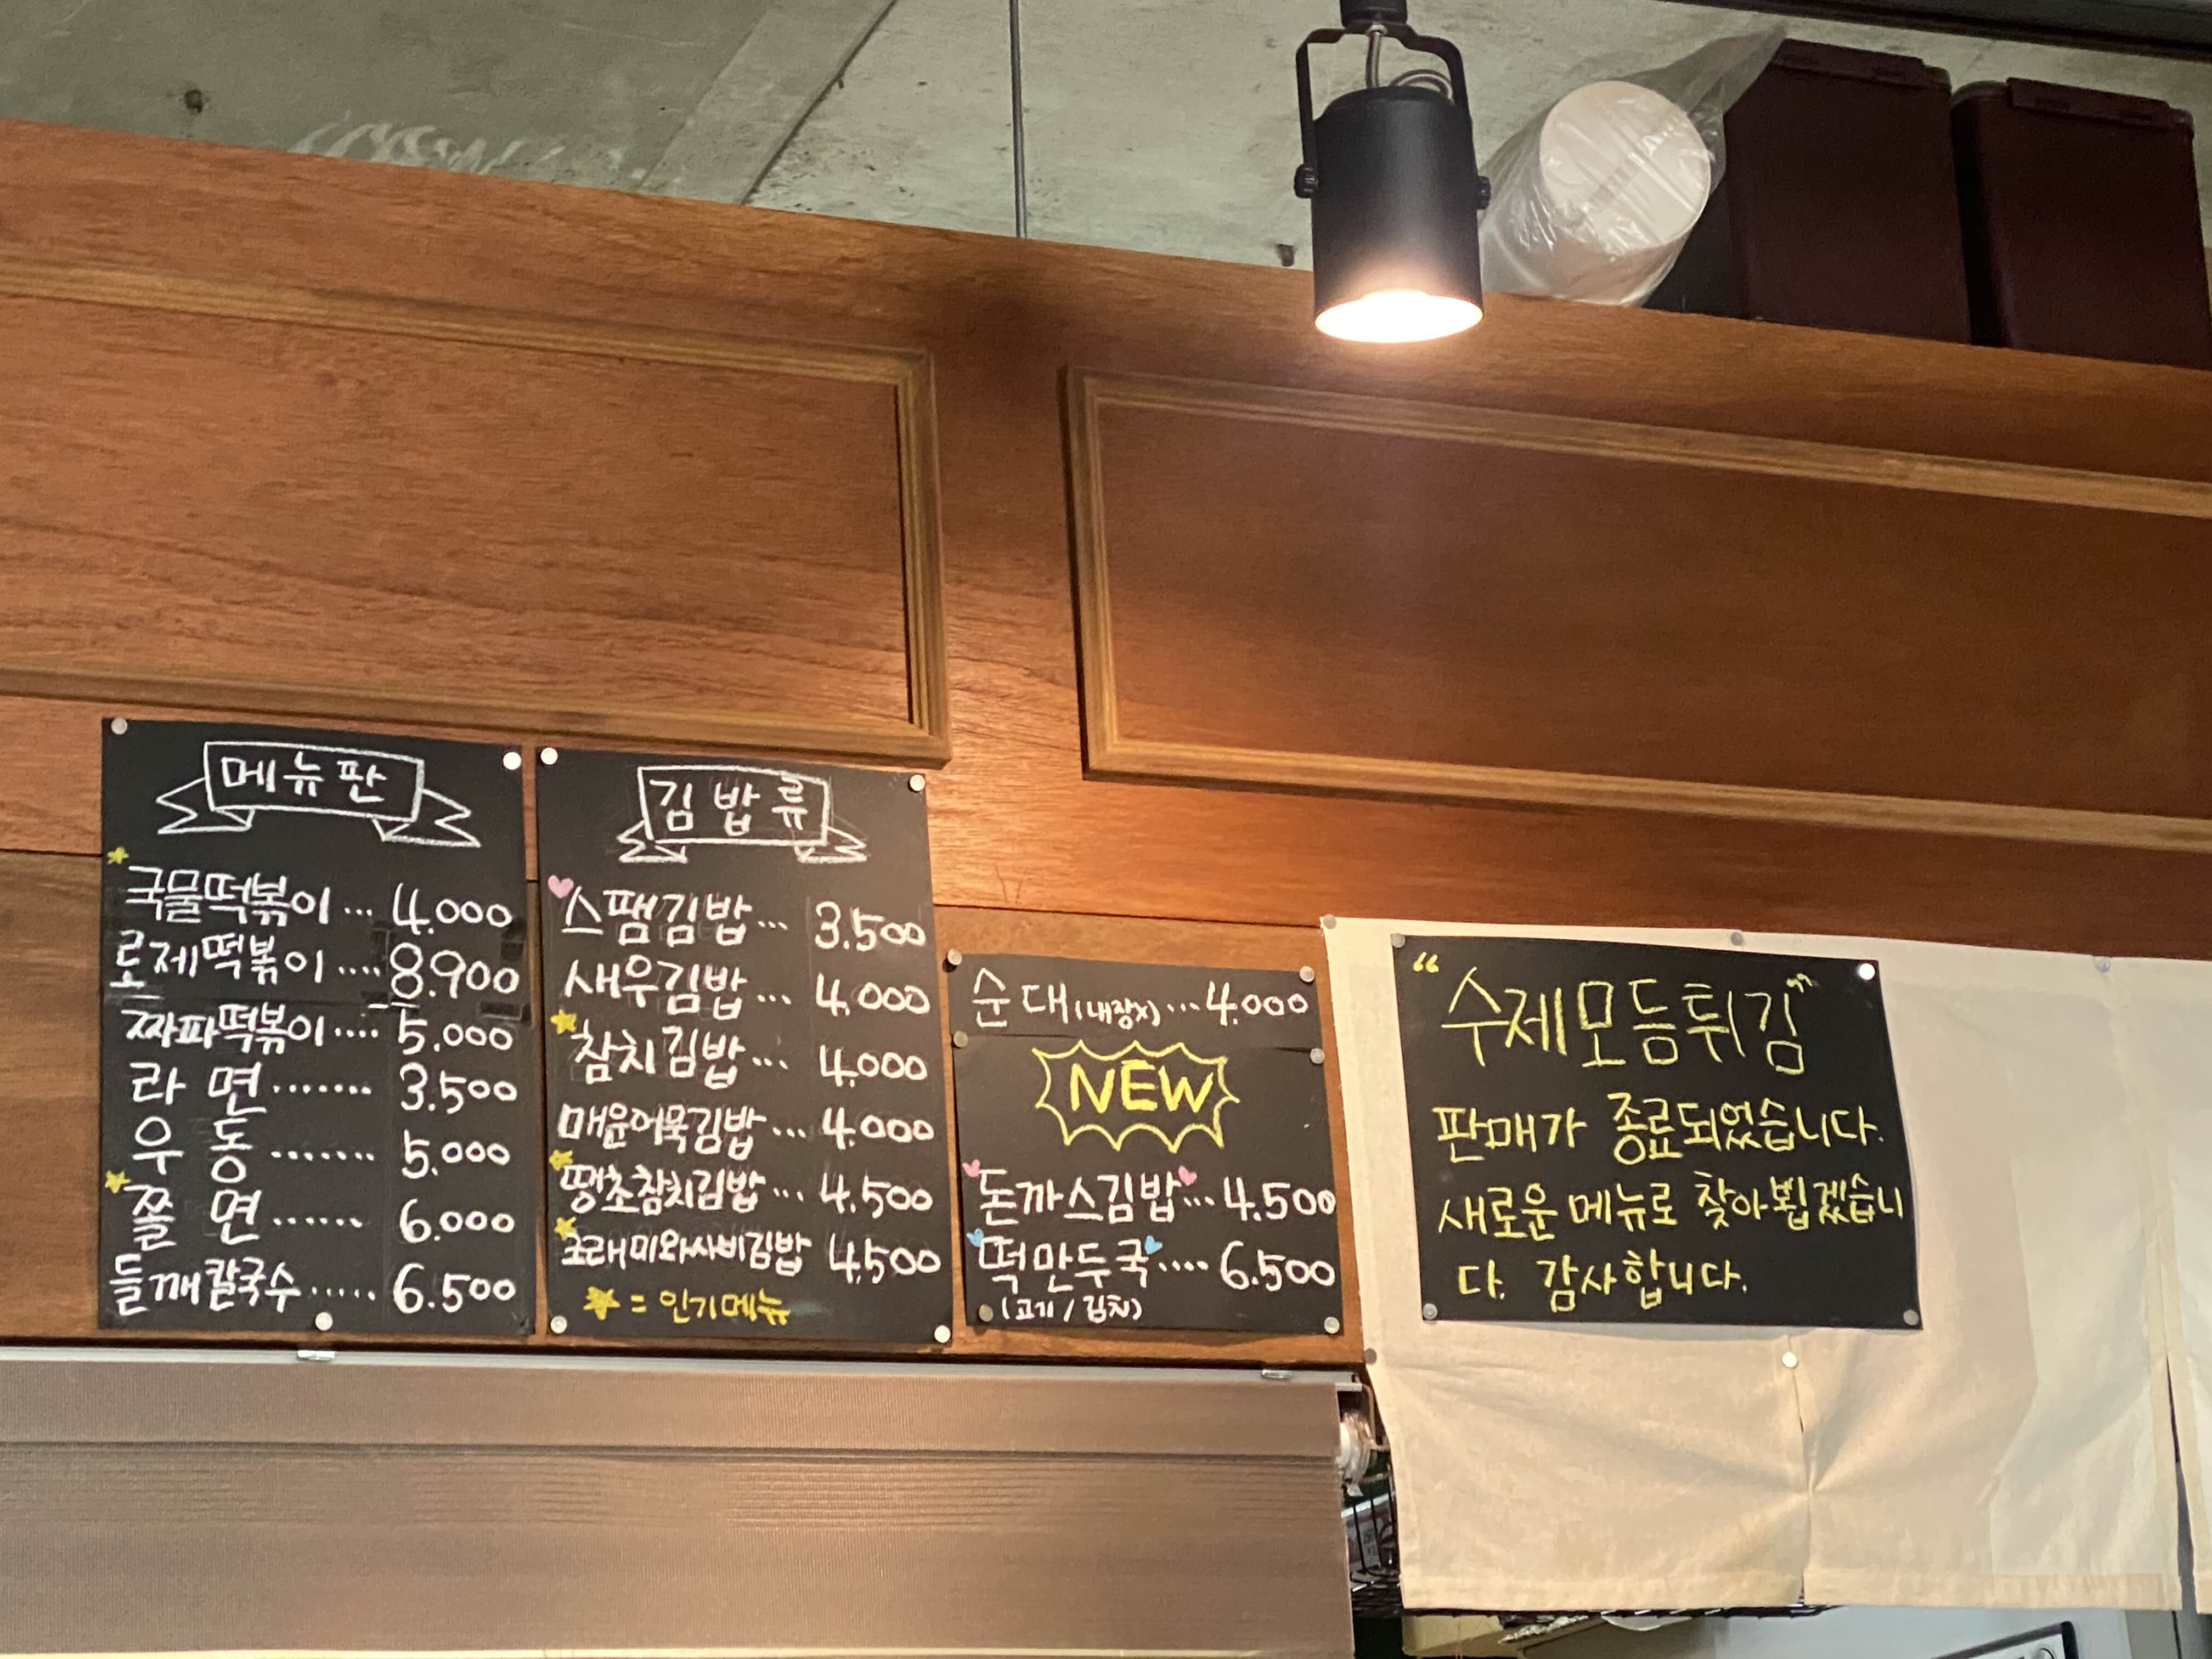 메뉴판
국물떡볶이... 4.000
로제떡볶이.... 8.900
짜파떡볶이.... 5.000
라면....... 3.500
우동....... 5.000
쫄면...... 6.000
들깨칼국수..... 6.500
김밥류
스팸김밥... 3.500
새우김밥... 4.000
참치김밥... 4.000
매운어묵김밥... 4.000
땡초참치김밥... 4.500
크래미와사비김밥 4.500
= 인기메뉴
순대(내장x)...4.000
NEW
돈까스김밥...4.500
떡만두국....6.500
(고기/김치)
“수제모듬튀김”
판매가 종료되었습니다.
새로운 메뉴로 찾아뵙겠습니
다. 감사합니다.